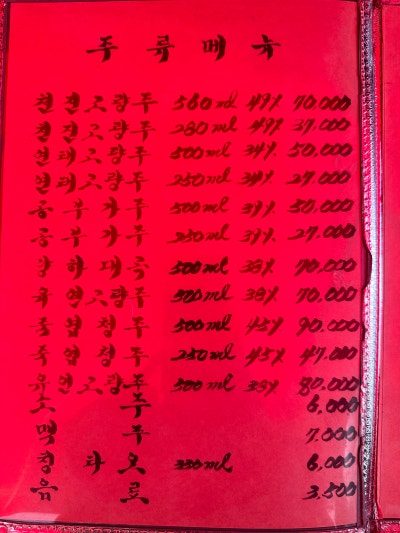 주류메뉴
천진고량주 560ml 49% 70,000
천진고량주 280ml 49% 37,000
연태고량주 500ml 34% 50,000
연태고량주 250ml 34% 27,000
공부가주 500ml 39% 50,000
공부가주 250ml 39% 27,000
양하대곡 500ml 38% 70,000
연고량주 500ml 38% 70,000
죽엽청주 500ml 45% 90,000
죽엽청주 250ml 45% 47,000
유연고량주 500ml 38% 80,000
소주 6,000
맥주 7,000
칭타오 330ml 6,000
음료 3,500